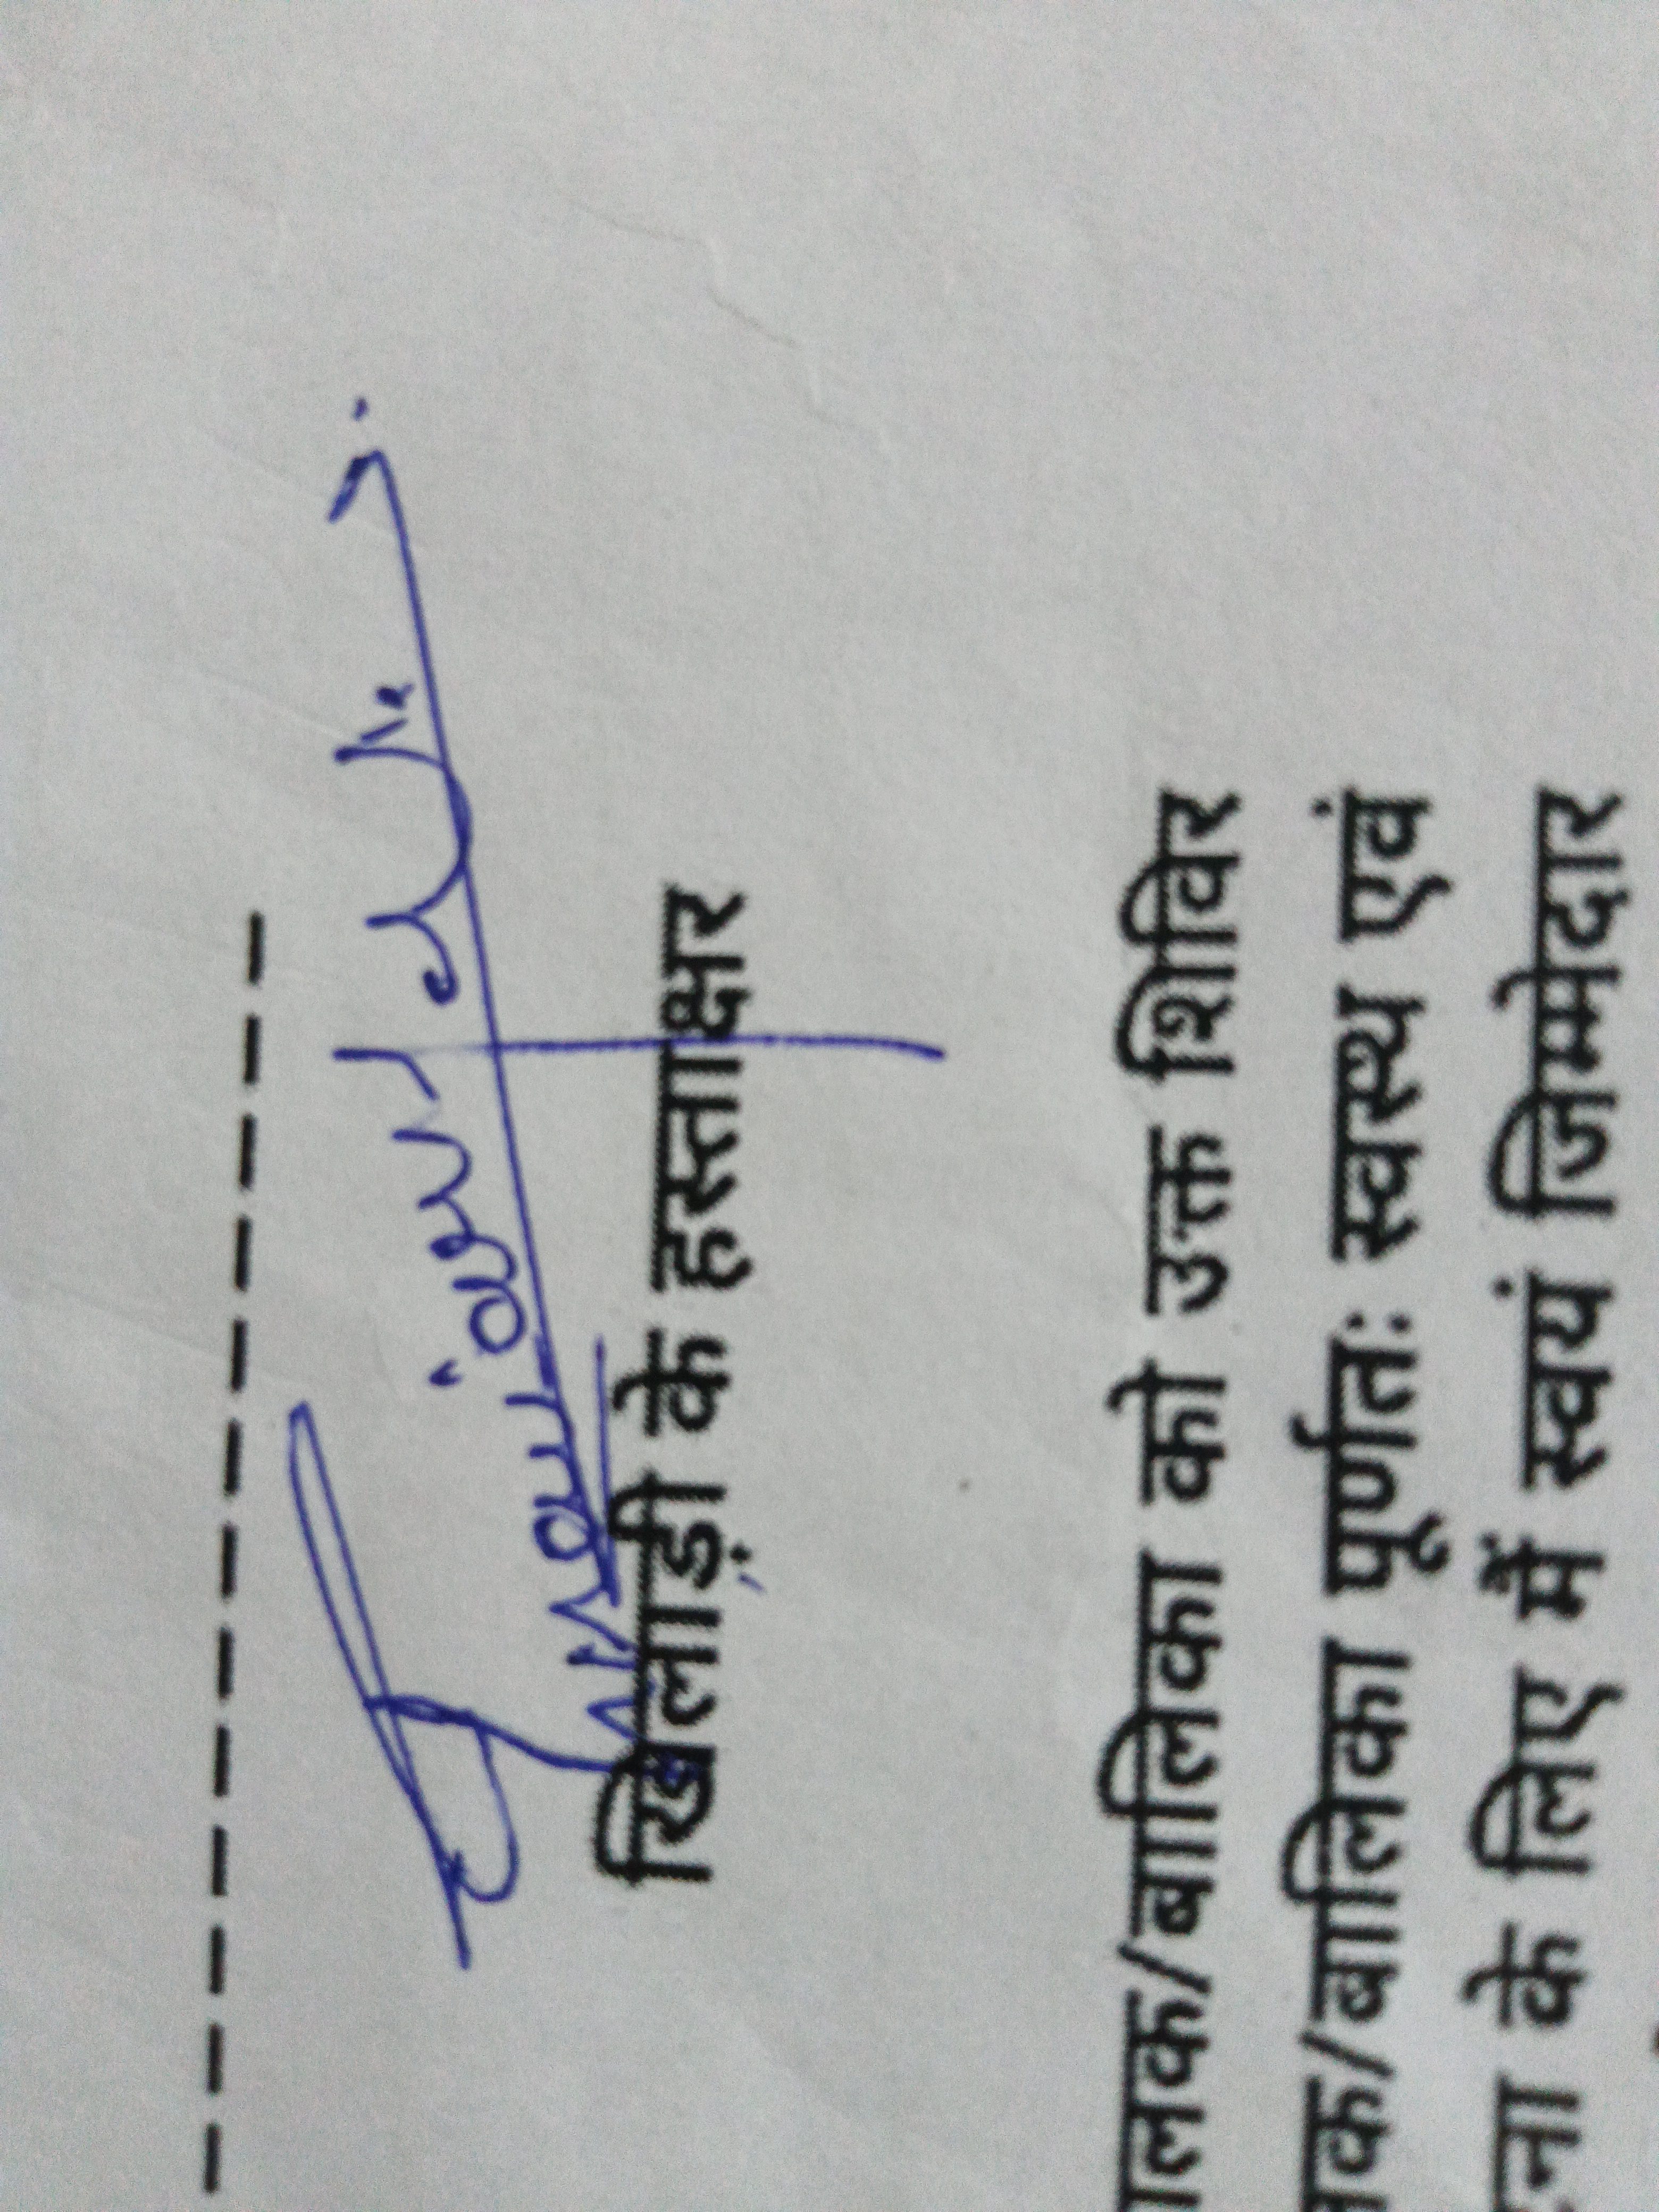 खिलाड़ी के हस्ताक्षर
ालक/बालिका को उक्त शिविर
लक/बालिका पूर्णतः स्वस्थ एवं
ना के लिए मैं स्वयं जिम्मेदार